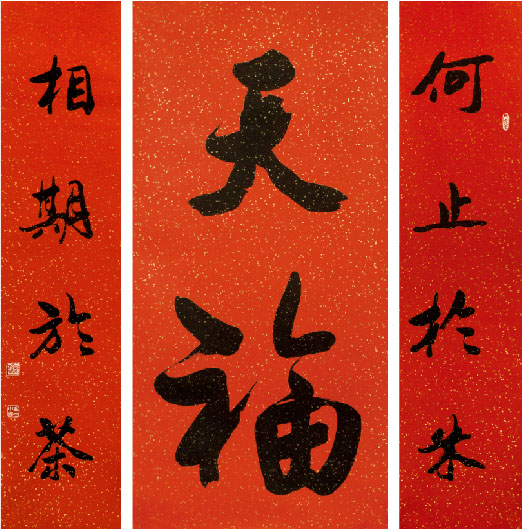 何止於米
天福
相期於茶